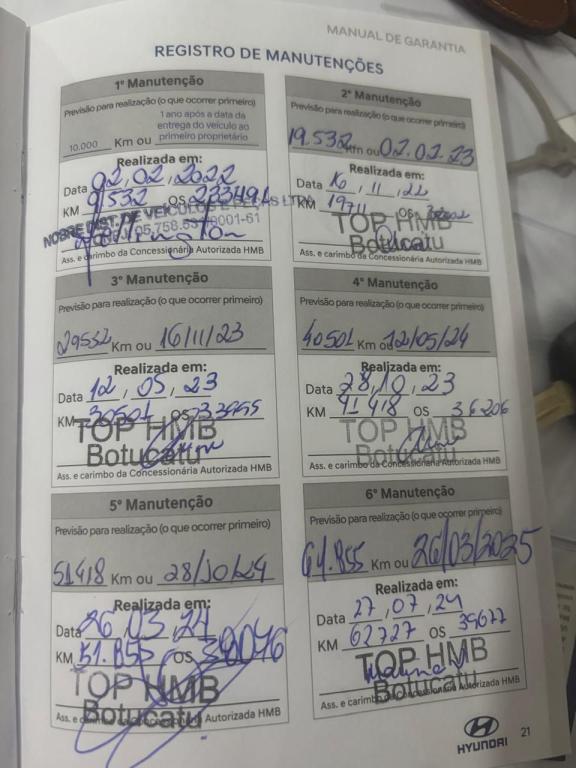 MANUAL DE GARANTIA
REGISTRO DE MANUTENÇÕES
1º Manutenção
Previsão para realização (o que ocorrer primeiro)
10.000 Km ou 1 ano após a data da entrega do veículo ao primeiro proprietário
Realizada em:
Data 02, 02, 2022
KM 9532 OS
NOBRE DIST. DE VEICULOS E PEÇAS LTDA
Ass. e carimbo da Concessionária Autorizada HMB
2º Manutenção
Previsão para realização (o que ocorrer primeiro)
19.532 Km ou 02.02.23
Realizada em:
Data 16, 11, 22
KM 19711 OS
TOP HMB
Botucatu
Ass. e carimbo da Concessionária Autorizada HMB
3º Manutenção
Previsão para realização (o que ocorrer primeiro)
29532 Km ou 16/11/23
Realizada em:
Data 12, 05, 23
KM 30501 OS 33955
TOP HMB
Botucatu
Ass. e carimbo da Concessionária Autorizada HMB
4º Manutenção
Previsão para realização (o que ocorrer primeiro)
40501 Km ou 12/05/24
Realizada em:
Data 28, 10, 23
KM 41418 OS 36206
TOP HMB
Botucatu
Ass. e carimbo da Concessionária Autorizada HMB
5º Manutenção
Previsão para realização (o que ocorrer primeiro)
51418 Km ou 28/10/24
Realizada em:
Data 26, 03, 24
KM 51.855 OS 38046
TOP HMB
Botucatu
Ass. e carimbo da Concessionária Autorizada HMB
6º Manutenção
Previsão para realização (o que ocorrer primeiro)
61.855 Km ou 26/03/2025
Realizada em:
Data 27, 07, 24
KM 62727 OS 39677
TOP HMB
Botucatu
Ass. e carimbo da Concessionária Autorizada HMB
HYUNDAI
21